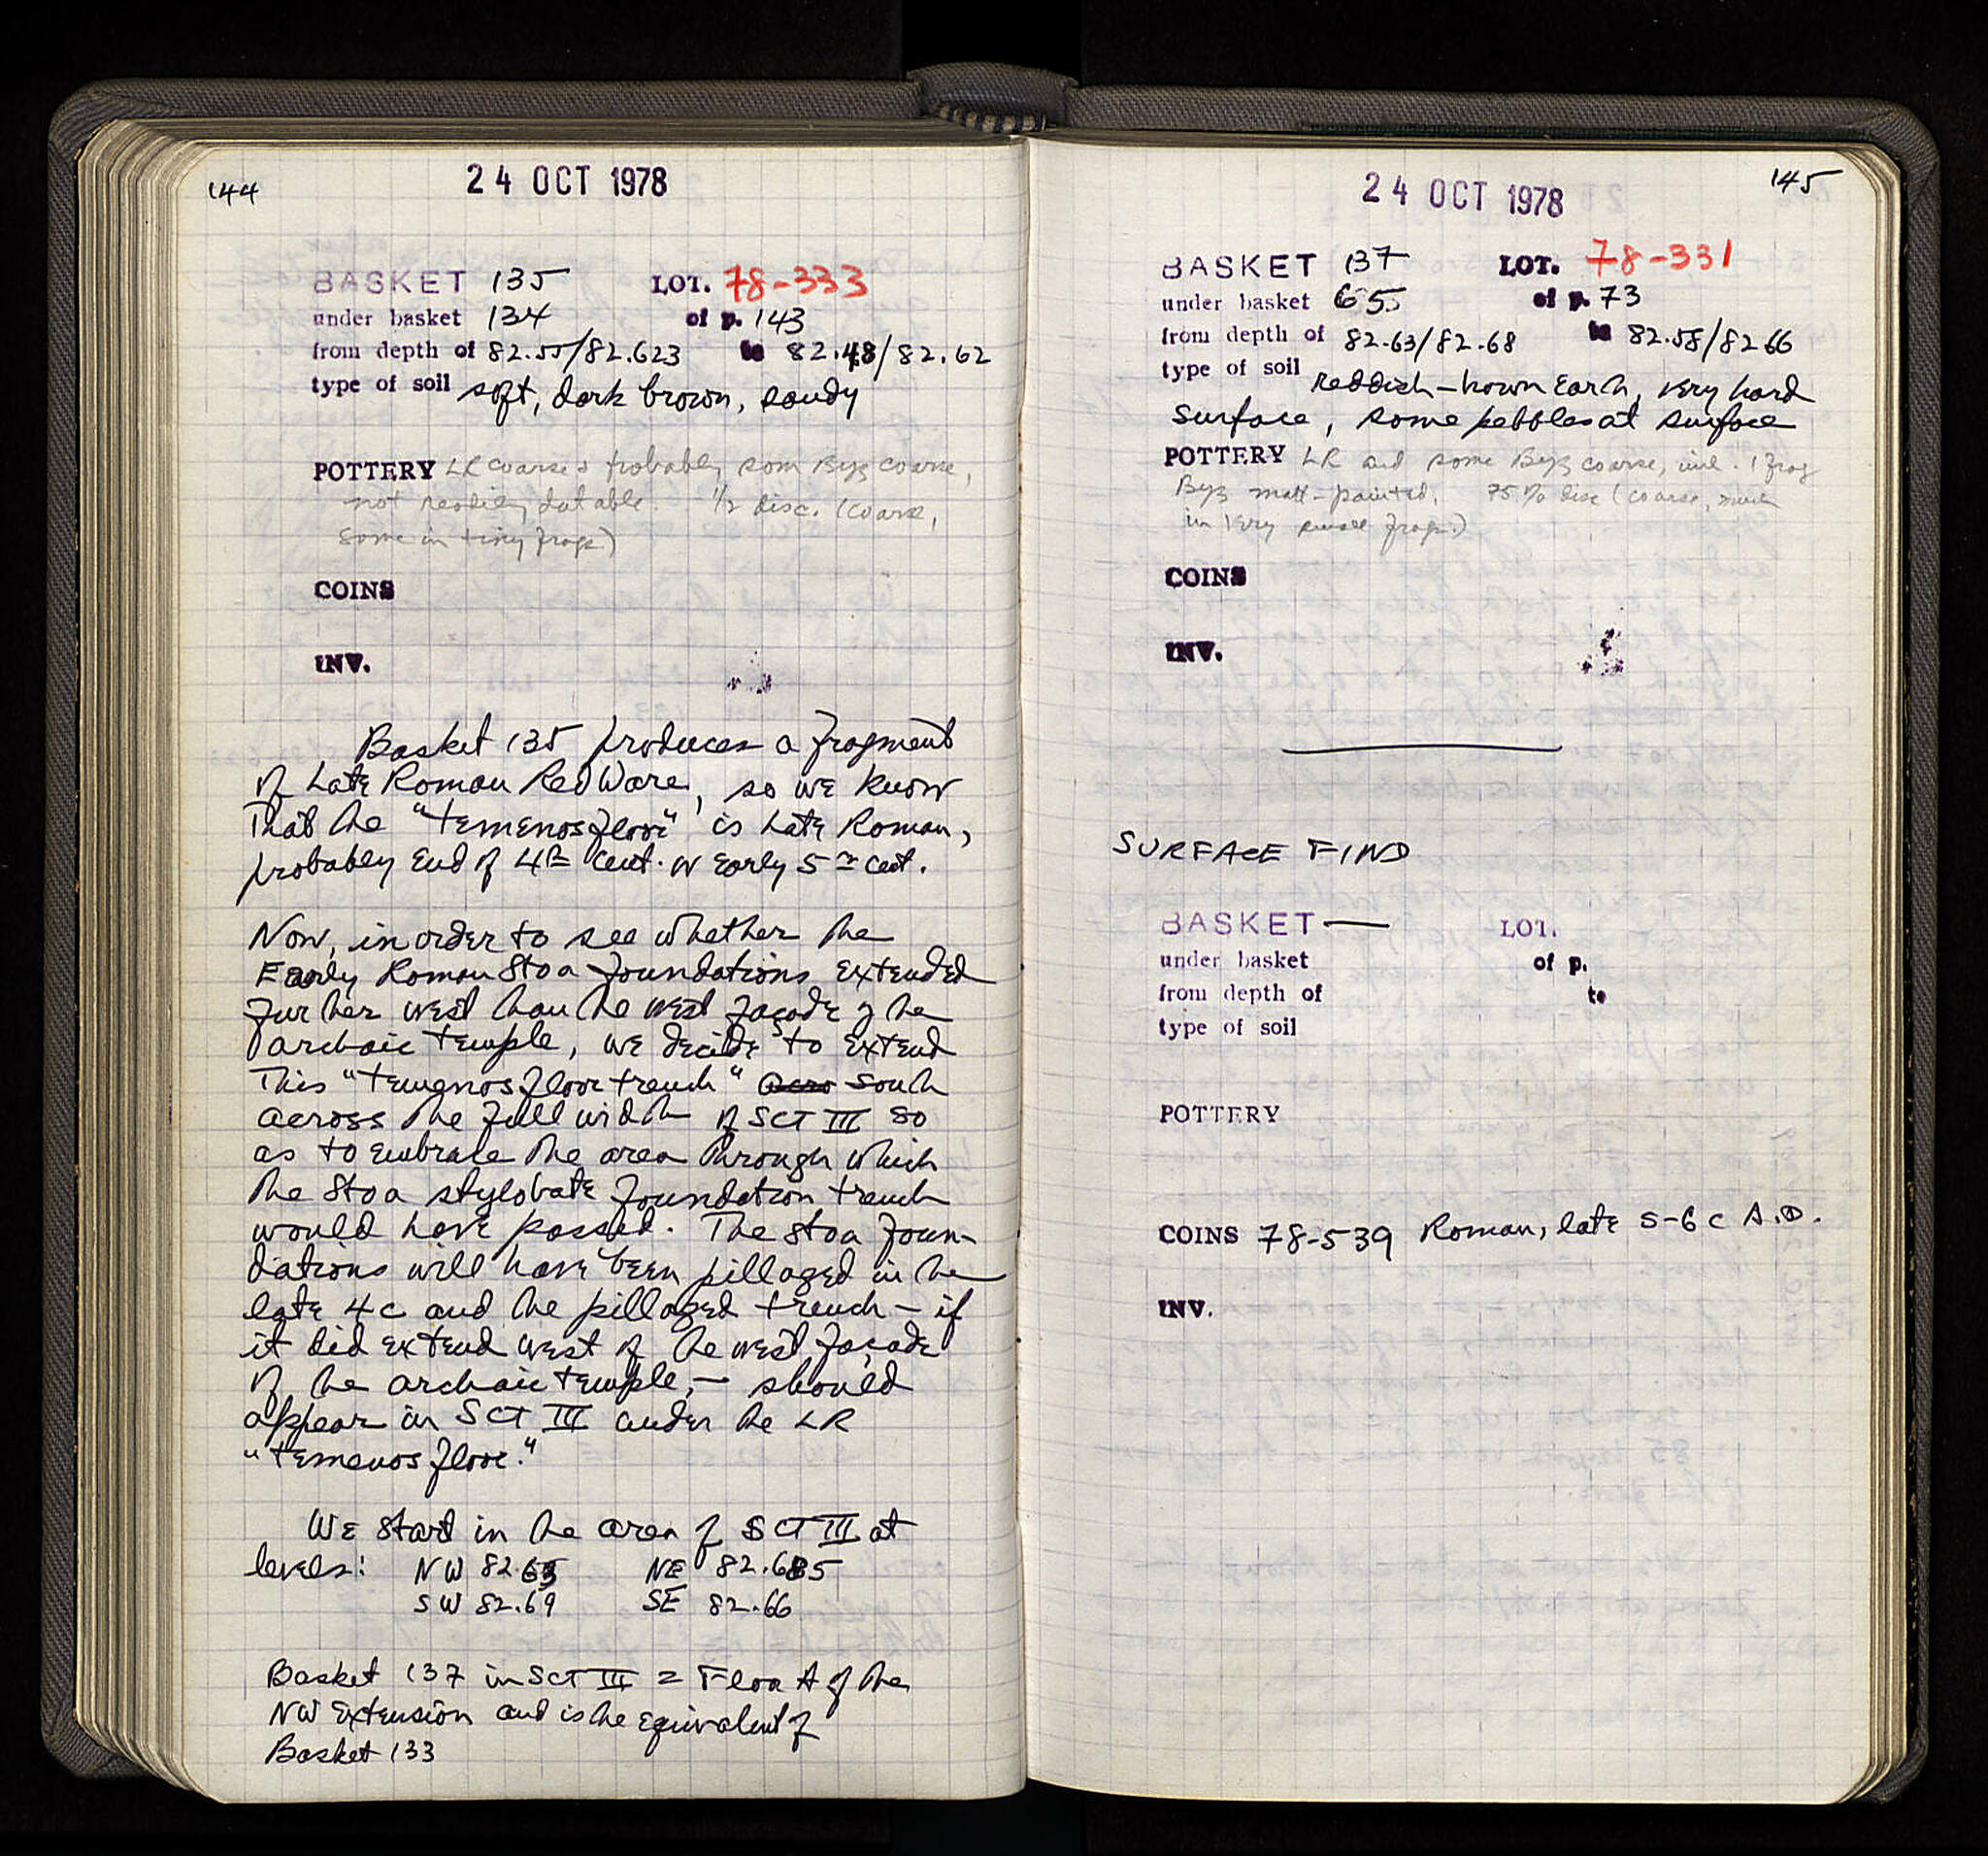 144
24 OCT 1978
BASKET 135 LOT. 78-333
under basket 134 of p. 143
from depth of 82.55/82.623 to 82.48/82.62
type of soil soft, dark brown, sandy
POTTERY LR coarse & probably some Byz coarse,
not readily datable. 1/2 disc. (coarse,
some in tiny frags)
COINS
INV.
Basket 135 produces a fragment
of Late Roman Red Ware, so we know
that the "temenos floor" is Late Roman,
probably end of 4th cent. or early 5th cent.
Now, in order to see whether the
Early Roman Stoa foundations extended
further west than the west façade of the
archaic temple, we decide to extend
this "temenos floor trench" acro south
across the full width of SCT III so
as to embrace the area through which
the Stoa stylobate foundation trench
would have passed. The Stoa foun-
dations will have been pillaged in the
late 4c and the pillaged trench - if
it did extend west of the west façade
of the archaic temple, - should
appear in SCT III under the LR
"temenos floor."
We start in the area of SCT III at
levels: NW 82.63 NE 82.685
SW 82.69 SE 82.66
Basket 137 in SCT III = Floor A of the
NW Extension and is the equivalent of
Basket 133
145
24 OCT 1978
BASKET 137 LOT. 78-331
under basket 65 of p. 73
from depth of 82.63/82.68 to 82.58/82.66
type of soil reddish-brown earth, very hard
surface, some pebbles at surface
POTTERY LR and some Byz coarse, incl. 1 frag
Byz matt-painted. 75% disc (coarse, much
in very small frags.)
COINS
INV.
SURFACE FIND
BASKET — LOT.
under basket of p.
from depth of to
type of soil
POTTERY
COINS 78-539 Roman, late 5-6 c A.D.
INV.